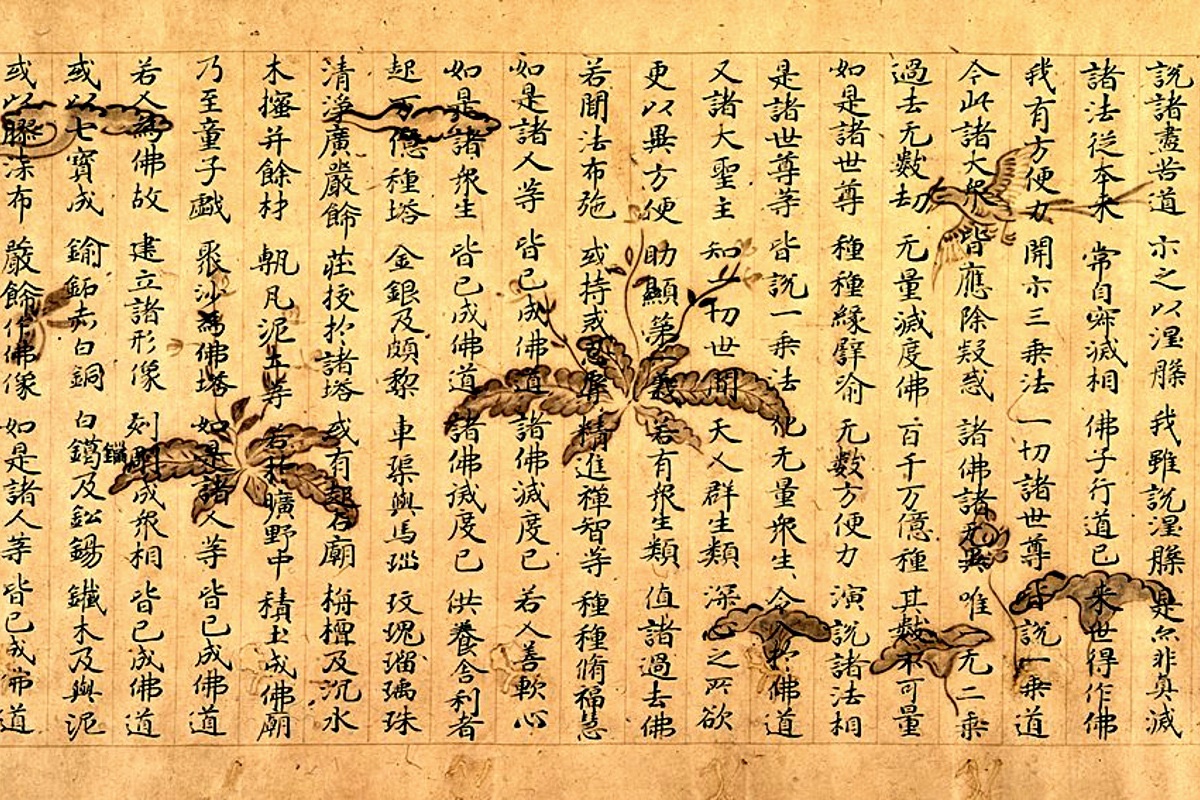 說諸盡苦道 示之以涅槃 我雖說涅槃 是亦非真滅
諸法從本來 常自寂滅相 佛子行道已 來世得作佛
我有方便力 開示三乘法 一切諸世尊 皆說一乘道
今此諸大衆 皆應除疑惑 諸佛語无異 唯一无二乘
過去无數劫 无量滅度佛 百千万億種 其數不可量
如是諸世尊 種種緣譬喻 无數方便力 演說諸法相
是諸世尊等 皆說一乘法 化无量衆生 令入於佛道
又諸大聖主 知一切世間 天人群生類 深心之所欲
更以異方便 助顯第一義 若有衆生類 值諸過去佛
若聞法布施 或持戒忍辱 精進禪智等 種種脩福慧
如是諸人等 皆已成佛道 諸佛滅度已 若人善軟心
如是諸衆生 皆已成佛道 諸佛滅度已 供養舍利者
起万億種塔 金銀及頗黎 車渠與馬瑙 玫瑰瑠璃珠
清淨廣嚴飾 莊挍於諸塔 或有起石廟 栴檀及沉水
木櫁并餘材 塼瓦泥土等 若於曠野中 積土成佛廟
乃至童子戲 聚沙為佛塔 如是諸人等 皆已成佛道
若人為佛故 建立諸形像 刻雕成衆相 皆已成佛道
或以七寶成 鍮鉐赤白銅 白鑞及鉛錫 鐵木及與泥
或以膠漆布 嚴飾作佛像 如是諸人等 皆已成佛道